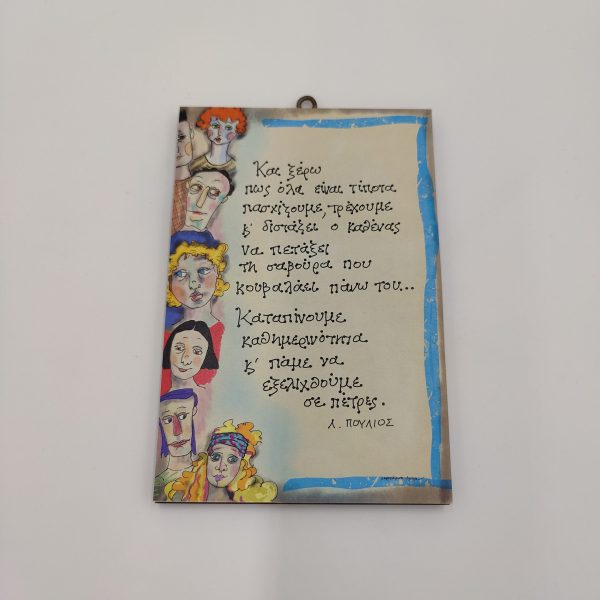 Και ξέρω
πως όλα είναι τίποτα
πασχίζουμε, τρέχουμε
κ' διστάζει ο καθένας
να πετάξει
τη σαβούρα που
κουβαλάει πάνω του...
Καταπίνουμε
καθημερινότητα
κ' πάμε να
εξελιχθούμε
σε πέτρες.
Λ. ΠΟΥΛΙΟΣ